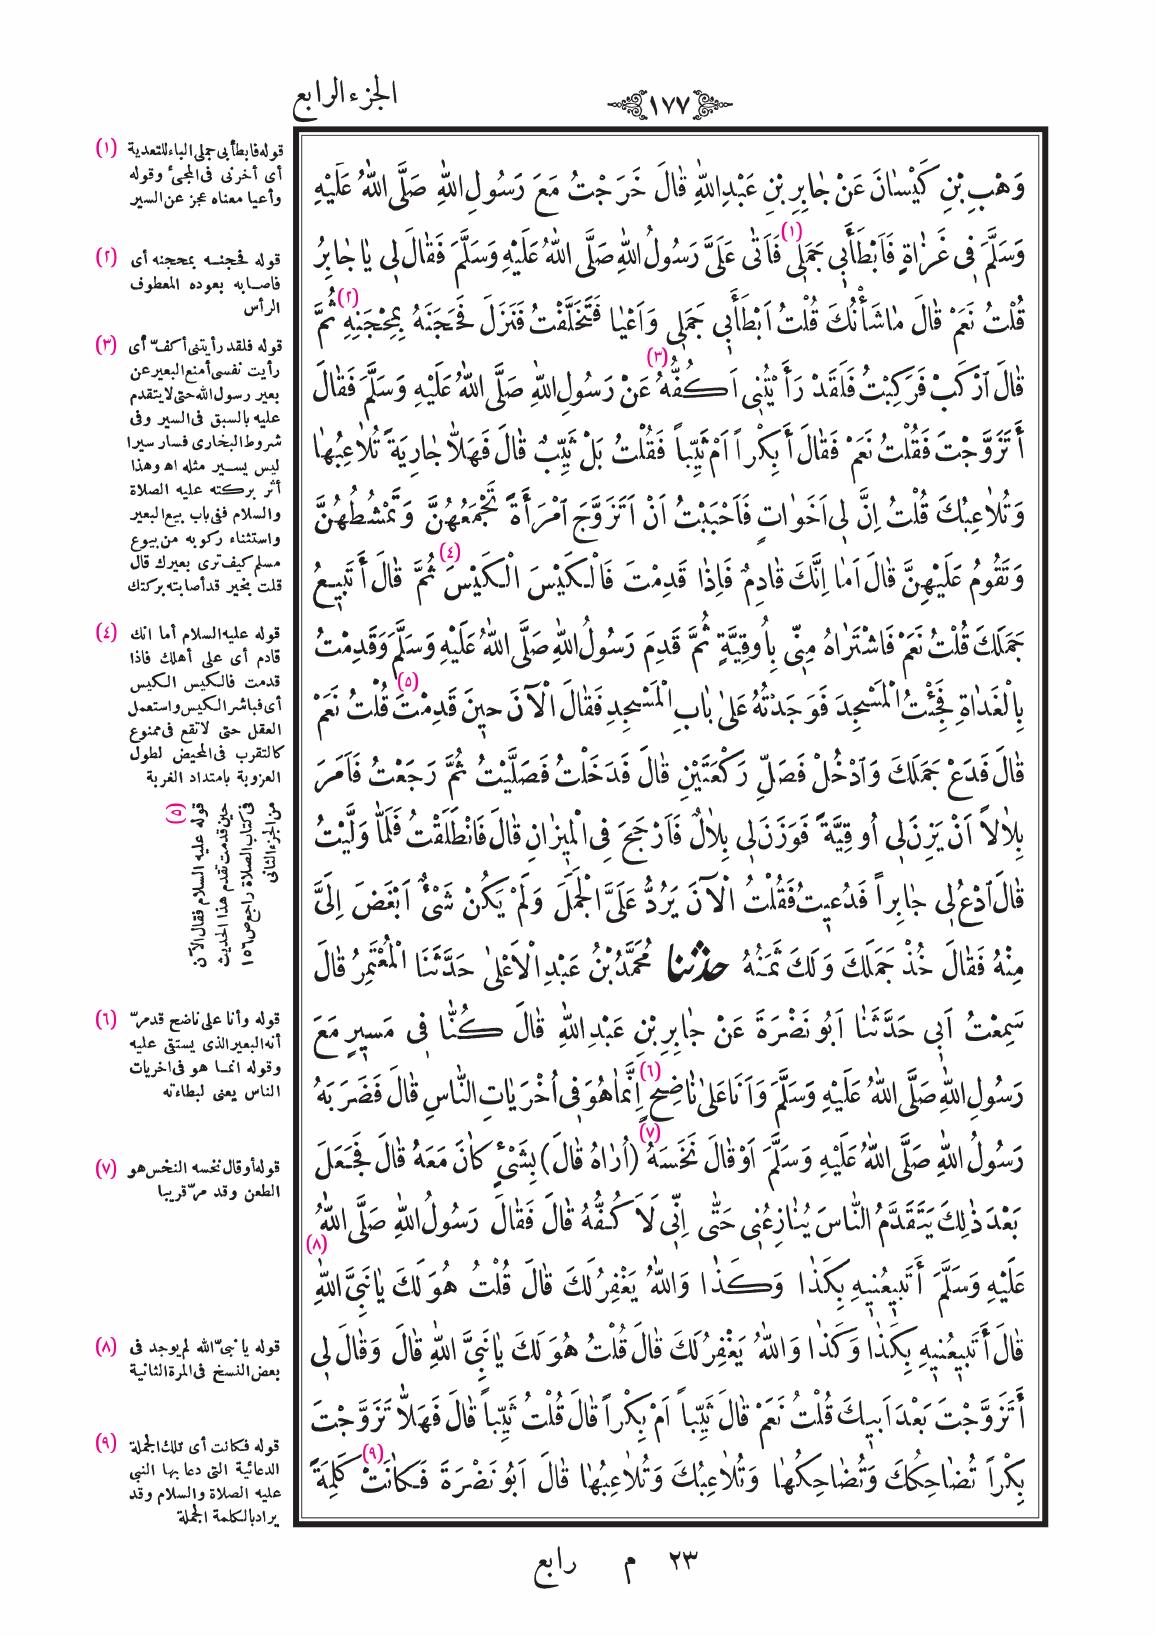 ١٧٧
الجزء الرابع
وَهْبِ بْنِ كَيْسَانَ عَنْ جَابِرِ بْنِ عَبْدِ اللّٰهِ قَالَ خَرَجْتُ مَعَ رَسُولِ اللّٰهِ صَلَّى اللّٰهُ عَلَيْهِ
وَسَلَّمَ فِي غَزَاةٍ فَاَبْطَأَبِي جَمَلِي (١) فَاَتٰى عَلَيَّ رَسُولُ اللّٰهِ صَلَّى اللّٰهُ عَلَيْهِ وَسَلَّمَ فَقَالَ لِي يَا جَابِرُ
قُلْتُ نَعَمْ قَالَ مَا شَأْنُكَ قُلْتُ اَبْطَأَبِي جَمَلِي وَاَعْيَا فَتَخَلَّفْتُ فَنَزَلَ فَحَجَنَهُ بِمِحْجَنِهِ (٢) ثُمَّ
قَالَ ارْكَبْ فَرَكِبْتُ فَلَقَدْ رَأَيْتُنِي اَكُفُّهُ (٣) عَنْ رَسُولِ اللّٰهِ صَلَّى اللّٰهُ عَلَيْهِ وَسَلَّمَ فَقَالَ
أَتَزَوَّجْتَ فَقُلْتُ نَعَمْ فَقَالَ أَبِكْراً اَمْ ثَيِّباً فَقُلْتُ بَلْ ثَيِّبٌ قَالَ فَهَلَّا جَارِيَةً تُلَاعِبُهَا
وَتُلَاعِبُكَ قُلْتُ اِنَّ لِي اَخَوَاتٍ فَاَحْبَبْتُ اَنْ اَتَزَوَّجَ امْرَأَةً تَجْمَعُهُنَّ وَتَمْشُطُهُنَّ
وَتَقُومُ عَلَيْهِنَّ قَالَ اَمَا اِنَّكَ قَادِمٌ فَاِذَا قَدِمْتَ فَالْكَيْسَ الْكَيْسَ (٤) ثُمَّ قَالَ أَتَبِيعُ
جَمَلَكَ قُلْتُ نَعَمْ فَاشْتَرَاهُ مِنِّي بِاُوقِيَّةٍ ثُمَّ قَدِمَ رَسُولُ اللّٰهِ صَلَّى اللّٰهُ عَلَيْهِ وَسَلَّمَ وَقَدِمْتُ
بِالْغَدَاةِ فَجِئْتُ الْمَسْجِدَ فَوَجَدْتُهُ عَلٰى بَابِ الْمَسْجِدِ فَقَالَ الْآنَ حِينَ قَدِمْتَ (٥) قُلْتُ نَعَمْ
قَالَ فَدَعْ جَمَلَكَ وَادْخُلْ فَصَلِّ رَكْعَتَيْنِ قَالَ فَدَخَلْتُ فَصَلَّيْتُ ثُمَّ رَجَعْتُ فَاَمَرَ
بِلَالاً اَنْ يَزِنَ لِي اُوقِيَّةً فَوَزَنَ لِي بِلَالٌ فَاَرْجَحَ فِي الْمِيزَانِ قَالَ فَانْطَلَقْتُ فَلَمَّا وَلَّيْتُ
قَالَ ادْعُ لِي جَابِراً فَدُعِيتُ فَقُلْتُ الْآنَ يَرُدُّ عَلَيَّ الْجَمَلَ وَلَمْ يَكُنْ شَيْءٌ اَبْغَضَ اِلَيَّ
مِنْهُ فَقَالَ خُذْ جَمَلَكَ وَلَكَ ثَمَنُهُ حدثنا مُحَمَّدُ بْنُ عَبْدِ الْاَعْلٰى حَدَّثَنَا الْمُعْتَمِرُ قَالَ
سَمِعْتُ اَبِي حَدَّثَنَا اَبُو نَضْرَةَ عَنْ جَابِرِ بْنِ عَبْدِ اللّٰهِ قَالَ كُنَّا فِي مَسِيرٍ مَعَ
رَسُولِ اللّٰهِ صَلَّى اللّٰهُ عَلَيْهِ وَسَلَّمَ وَاَنَا عَلٰى نَاضِحٍ (٦) اِنَّمَا هُوَ فِي اُخْرَيَاتِ النَّاسِ قَالَ فَضَرَبَهُ
رَسُولُ اللّٰهِ صَلَّى اللّٰهُ عَلَيْهِ وَسَلَّمَ اَوْ قَالَ نَخَسَهُ (٧) (اُرَاهُ قَالَ) بِشَيْءٍ كَانَ مَعَهُ قَالَ فَجَعَلَ
بَعْدَ ذٰلِكَ يَتَقَدَّمُ النَّاسَ يُنَازِعُنِي حَتّٰى اِنِّي لَاَكُفُّهُ قَالَ فَقَالَ رَسُولُ اللّٰهِ صَلَّى اللّٰهُ
عَلَيْهِ وَسَلَّمَ أَتَبِيعُنِيهِ بِكَذَا وَكَذَا وَاللّٰهُ يَغْفِرُ لَكَ قَالَ قُلْتُ هُوَ لَكَ يَا نَبِيَّ اللّٰهِ (٨)
قَالَ أَتَبِيعُنِيهِ بِكَذَا وَكَذَا وَاللّٰهُ يَغْفِرُ لَكَ قَالَ قُلْتُ هُوَ لَكَ يَا نَبِيَّ اللّٰهِ قَالَ وَقَالَ لِي
أَتَزَوَّجْتَ بَعْدَ اَبِيكَ قُلْتُ نَعَمْ قَالَ ثَيِّباً اَمْ بِكْراً قَالَ قُلْتُ ثَيِّباً قَالَ فَهَلَّا تَزَوَّجْتَ
بِكْراً تُضَاحِكُكَ وَتُضَاحِكُهَا وَتُلَاعِبُكَ وَتُلَاعِبُهَا قَالَ اَبُو نَضْرَةَ فَكَانَتْ (٩) كَلِمَةً
(١) قوله فابطأبى جملى الباء للتعدية
أى أخرنى فى المجىء وقوله
وأعيا معناه عجز عن السير
(٢) قوله فحجنه بمحجنه أى
فاصابه بعوده المعطوف
الرأس
(٣) قوله فلقد رأيتنى أكفّه أى
رأيت نفسى أمنع البعير عن
بعير رسول الله حتى لا يتقدم
عليه بالسبق فى السير وفى
شروط البخارى فسار سيرا
ليس يسير مثله اه وهذا
أثر بركته عليه الصلاة
والسلام ففى باب بيع البعير
واستثناء ركوبه من بيوع
مسلم كيف ترى بعيرك قال
قلت بخير قد أصابته بركتك
(٤) قوله عليه السلام أما انك
قادم أى على أهلك فاذا
قدمت فالكيس الكيس
أى فباشر الكيس واستعمل
العقل حتى لا تقع فى ممنوع
كالتقرب فى المحيض لطول
العزوبة بامتداد الغربة
(٥) قوله عليه السلام فقال الآن
حين قدمت تقدم هذا الحديث
فى كتاب الصلاة راجع ص ١٥٦
من الجزء الثانى
(٦) قوله وأنا على ناضح قد مرّ
أنه البعير الذى يستقى عليه
وقوله انما هو فى اخريات
الناس يعنى لبطاءته
(٧) قوله أو قال نخسه النخس هو
الطعن وقد مرّ قريبا
(٨) قوله يا نبىّ الله لم يوجد فى
بعض النسخ فى المرة الثانية
(٩) قوله فكانت أى تلك الجملة
الدعائية التى دعا بها النبى
عليه الصلاة والسلام وقد
يراد بالكلمة الجملة
٢٣ م رابع